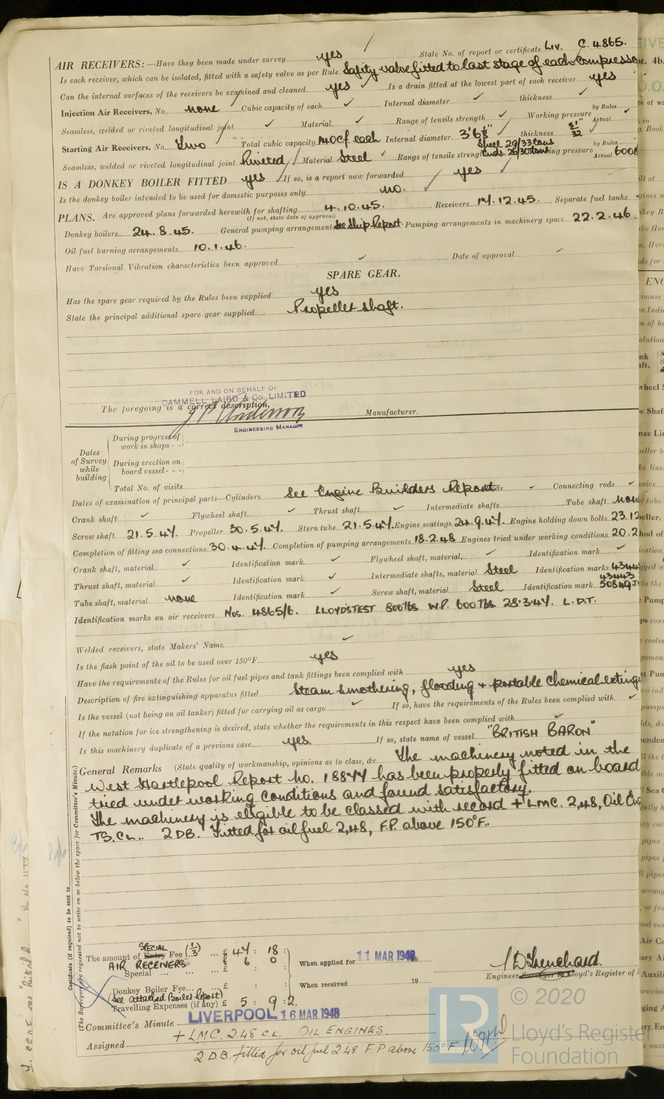 AIR RECEIVERS:—Have they been made under survey yes State No. of report or certificate Liv. C. 4865.
Is each receiver, which can be isolated, fitted with a safety valve as per Rule Safety valve fitted to last stage of each compressor
Can the internal surfaces of the receivers be examined and cleaned yes Is a drain fitted at the lowest part of each receiver yes
Injection Air Receivers, No. none Cubic capacity of each Internal diameter thickness
Seamless, welded or riveted longitudinal joint Material Range of tensile strength Working pressure by Rules Actual
Starting Air Receivers, No. Two Total cubic capacity 140 cf each Internal diameter 3'6½" thickness 31/32"
Seamless, welded or riveted longitudinal joint Riveted Material Steel Range of tensile strength Shell 29/33 tons Ends 26/30 tons Working pressure by Rules Actual 600
IS A DONKEY BOILER FITTED yes If so, is a report now forwarded yes
Is the donkey boiler intended to be used for domestic purposes only no.
PLANS. Are approved plans forwarded herewith for shafting 4.10.45. Receivers 14.12.45. Separate fuel tanks
(If not, state date of approval)
Donkey boilers 24.8.45. General pumping arrangements See Ship Report Pumping arrangements in machinery space 22.2.46.
Oil fuel burning arrangements 10.1.46.
Have Torsional Vibration characteristics been approved Date of approval
SPARE GEAR.
Has the spare gear required by the Rules been supplied yes
State the principal additional spare gear supplied Propeller shaft.
FOR AND ON BEHALF OF
CAMMELL LAIRD & CO. LIMITED
The foregoing is a correct description, Manufacturer.
ENGINEERING MANAGER
Dates of Survey while building
During progress of work in shops - -
During erection on board vessel - - -
Total No. of visits
Dates of examination of principal parts—Cylinders See Engine Builders Report Connecting rods
Crank shaft Flywheel shaft Thrust shaft Intermediate shafts Tube shaft none
Screw shaft 21.5.47. Propeller 30.5.47. Stern tube 21.5.47. Engine seatings 24.9.47. Engine holding down bolts 23.12
Completion of fitting sea connections 30.4.47. Completion of pumping arrangements 18.2.48 Engines tried under working conditions 20.2
Crank shaft, material Identification mark Flywheel shaft, material Identification mark
Thrust shaft, material Identification mark Intermediate shafts, material Steel Identification marks
Tube shaft, material none Identification mark Screw shaft, material Steel Identification mark
Identification marks on air receivers Nos. 4865/6. LLOYDS TEST 800 lbs W.P. 600 lbs 28.3.47. L.D.T.
Welded receivers, state Makers' Name
Is the flash point of the oil to be used over 150°F. yes
Have the requirements of the Rules for oil fuel pipes and tank fittings been complied with yes
Description of fire extinguishing apparatus fitted Steam smothering, flooding + portable chemical exting
Is the vessel (not being an oil tanker) fitted for carrying oil as cargo If so, have the requirements of the Rules been complied with
If the notation for ice strengthening is desired, state whether the requirements in this respect have been complied with
Is this machinery duplicate of a previous case yes. If so, state name of vessel "BRITISH BARON"
General Remarks (State quality of workmanship, opinions as to class, &c. The machinery noted in the
West Hartlepool Report no. 18844 has been properly fitted on board
tried under working conditions and found satisfactory.
The machinery is eligible to be classed with record + LMC. 2,48, Oil Eng
TS.CL.. 2 DB. Fitted for oil fuel 2,48, F.P. above 150°F.
The amount of SPECIAL Entry Fee (1/3) £ 47 : 18 :
AIR RECEIVERS £ 6 0 When applied for 11 MAR 1948
Special
Donkey Boiler Fee When received 19
(See attached Boiler Report)
Travelling Expenses (if any) £ 5 : 9 : 2.
Engineer Surveyor to Lloyd's Register of
Committee's Minute LIVERPOOL 16 MAR 1948
Assigned + LMC. 2.48 CL. OIL ENGINES.
2 D.B. fitted for oil fuel 2.48 F.P. above 150°F.
Certificate (if required) to be sent to
(The Surveyors are requested not to write on or below the space for Committee's Minute)
© 2020
LR Lloyd's Register
Foundation